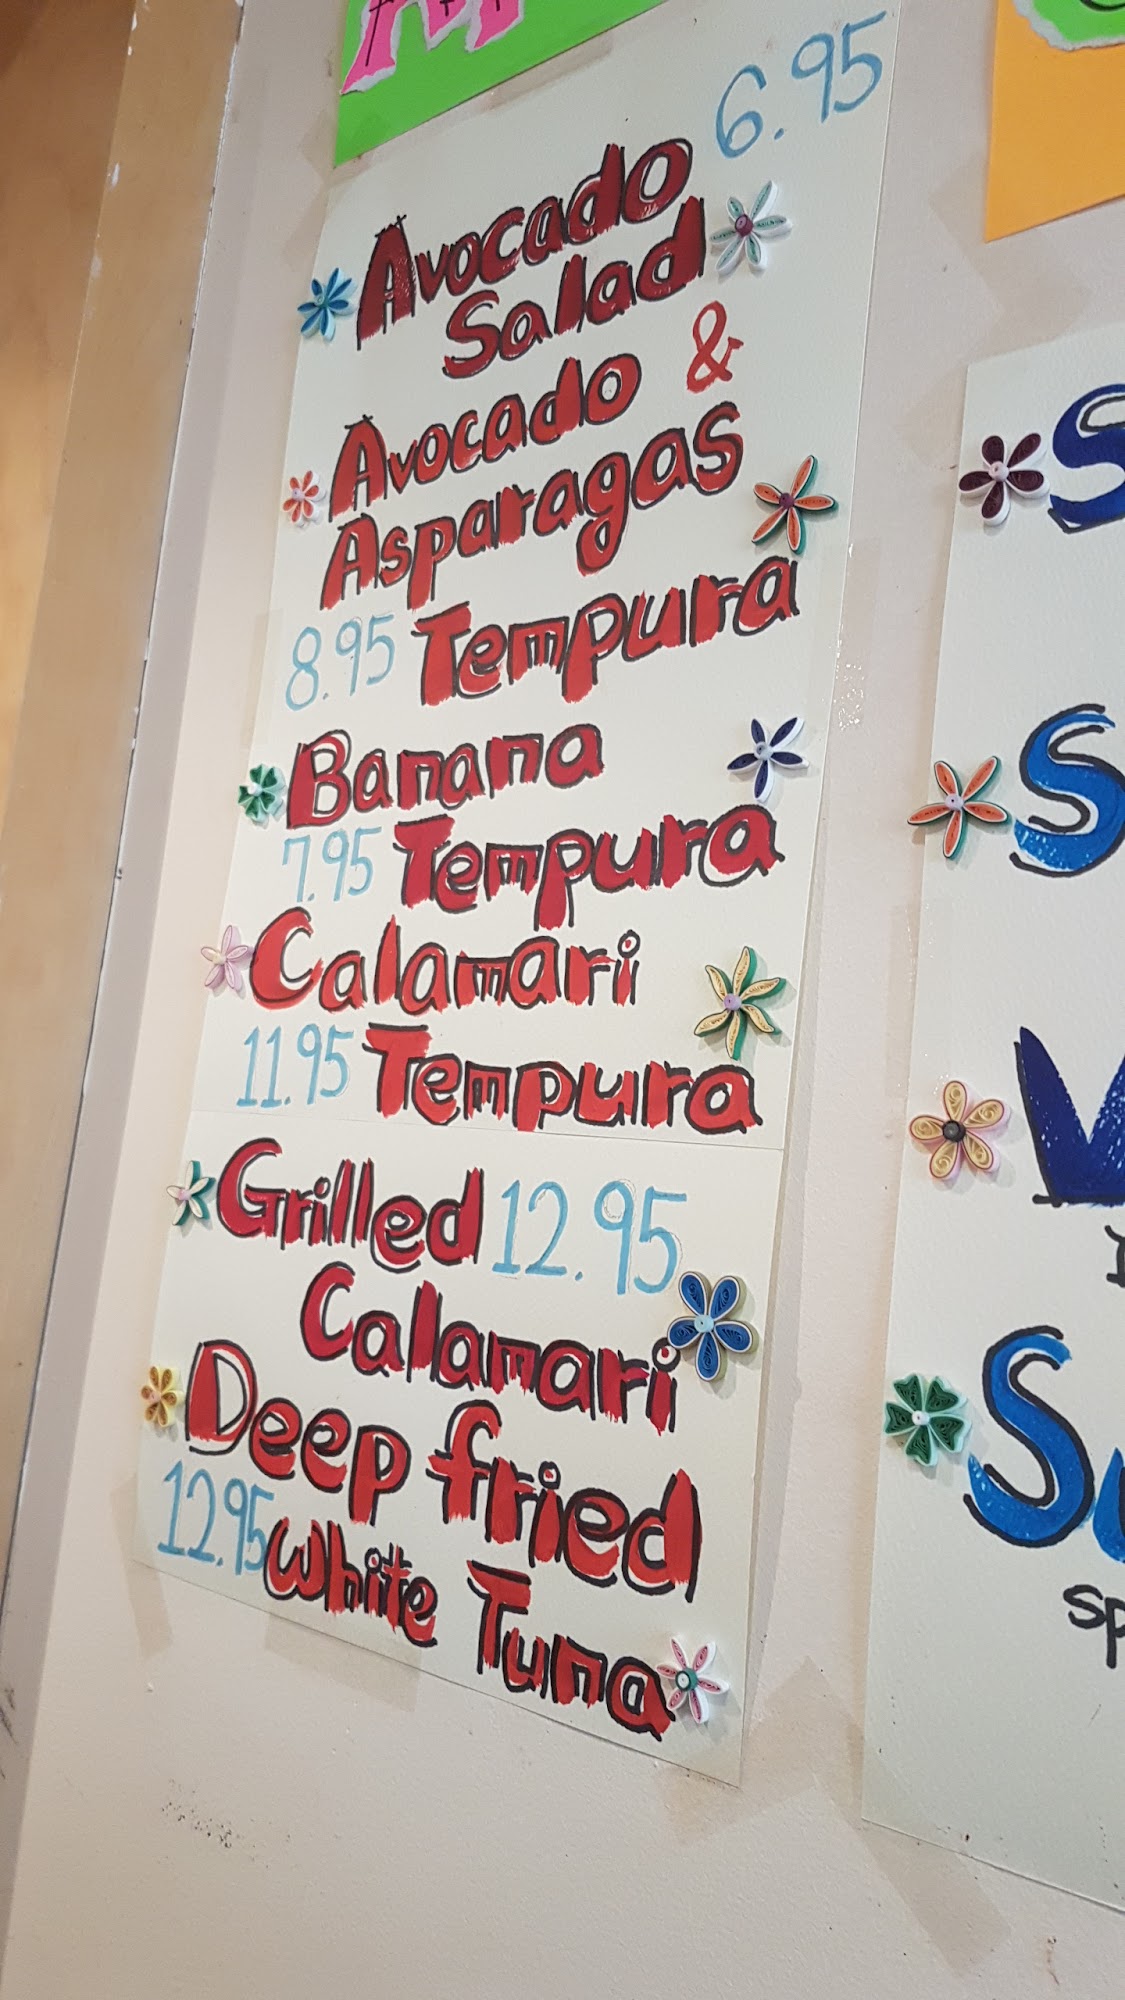 6.95
Avocado
Salad
Avocado &
Asparagas
8.95 Tempura
Banana
7.95 Tempura
Calamari
11.95 Tempura
Grilled 12.95
Calamari
Deep fried
12.95 White Tuna